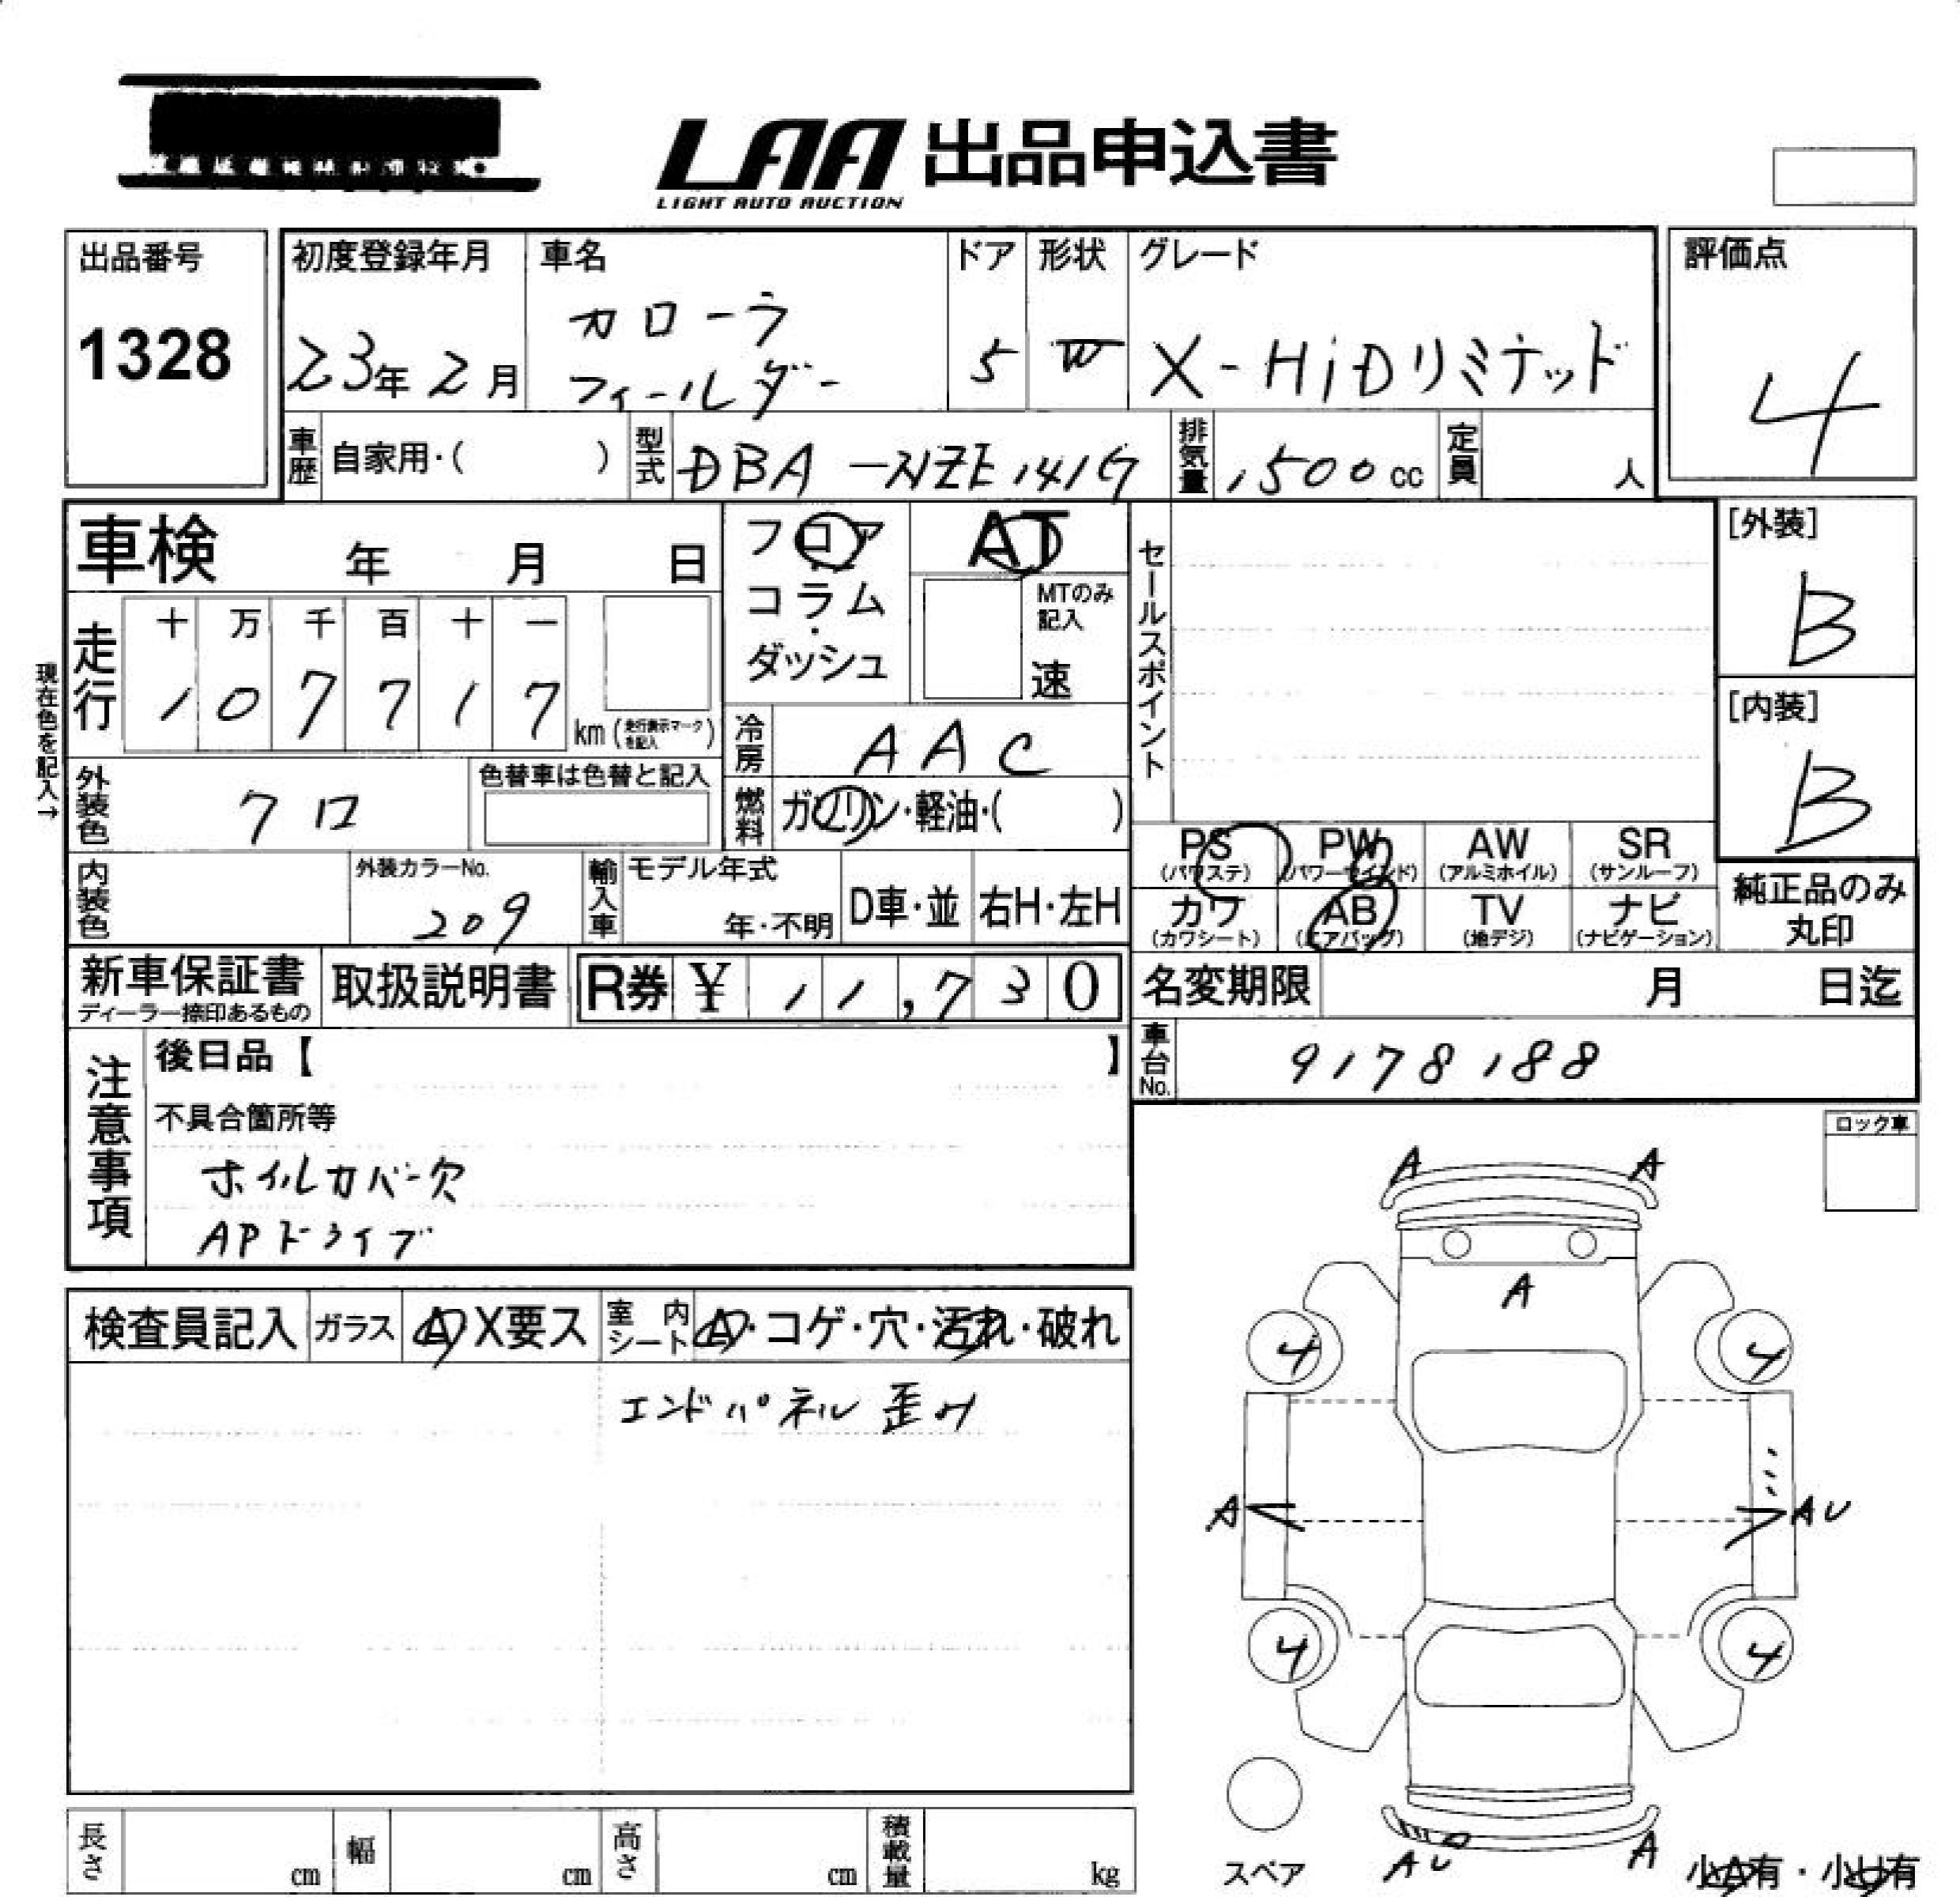 LAA 出品申込書
LIGHT AUTO AUCTION
出品番号
1328
初度登録年月
23年2月
車名
カローラ
フィールダー
ドア
5
形状
W
グレード
X-HiDリミテッド
評価点
4
車歴 自家用・( )
型式 DBA-NZE141G
排気量 1500cc
定員 人
車検 年 月 日
フロア
コラム
・
ダッシュ
AT
MTのみ
記入
速
セールスポイント
[外装]
B
[内装]
B
現在色を記入→
走行
十 万 千 百 十 一
1 0 7 7 1 7 km (走行表示マークを記入)
冷房 AAC
外装色 クロ
色替車は色替と記入
燃料 ガソリン・軽油・( )
PS (パワステ)
PW (パワーウインド)
AW (アルミホイル)
SR (サンルーフ)
カワ (カワシート)
AB (エアバッグ)
TV (地デジ)
ナビ (ナビゲーション)
純正品のみ
丸印
内装色
外装カラーNo.
209
輸入車
モデル年式
年・不明
D車・並
右H・左H
新車保証書
ディーラー捺印あるもの
取扱説明書
R券 ¥ 11,730
名変期限 月 日迄
車台No. 9178188
注意事項
後日品【 】
不具合箇所等
ホイルカバー欠
APドライブ
ロック車
検査員記入
ガラス A X要ス
室内シート A・コゲ・穴・汚れ・破れ
エンドパネル歪み
A A
A
4 4
A AU
4 4
スペア
AU A
小A有・小U有
長さ cm
幅 cm
高さ cm
積載量 kg